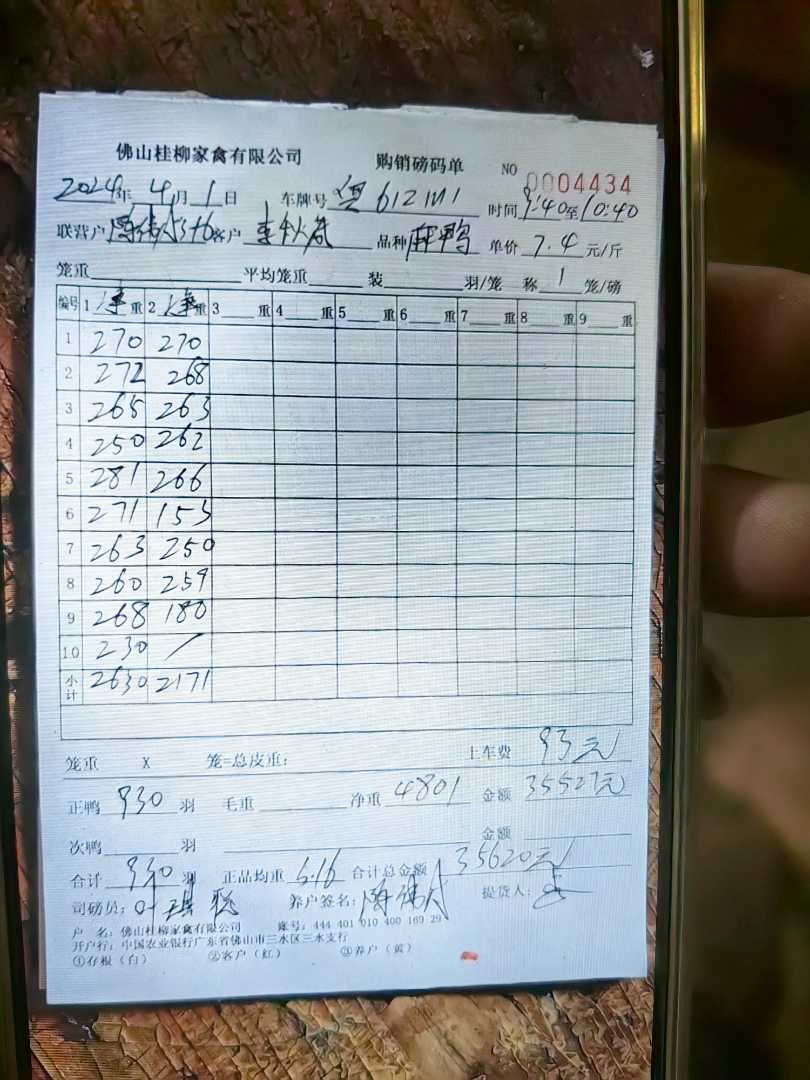 佛山桂柳家禽有限公司 购销磅码单 NO 0004434
2024年 4月 1日 车牌号 粤 612 时间 9:40至10:40
联营户 客户 品种 麻鸭 单价 7.4 元/斤
笼重 平均笼重 装 羽/笼 称 1 笼/磅
编号 1 净重 2 净重 3 重 4 重 5 重 6 重 7 重 8 重 9 重
1 270 270
2 272 268
3 265 263
4 250 262
5 281 266
6 271 153
7 263 250
8 260 259
9 268 180
10 230 /
小计 2630 2171
笼重 X 笼=总皮重: 上车费 93元
正鸭 930 羽 毛重 净重 4801 金额 35527元
次鸭 羽 金额
合计 930 羽 正品均重 5.16 合计总金额 35620元
司磅员: 养户签名: 提货人:
户 名: 佛山桂柳家禽有限公司 账号: 444 401 010 400 169 29
开户行: 中国农业银行广东省佛山市三水区三水支行
①存根(白) ②客户(红) ③养户(黄)